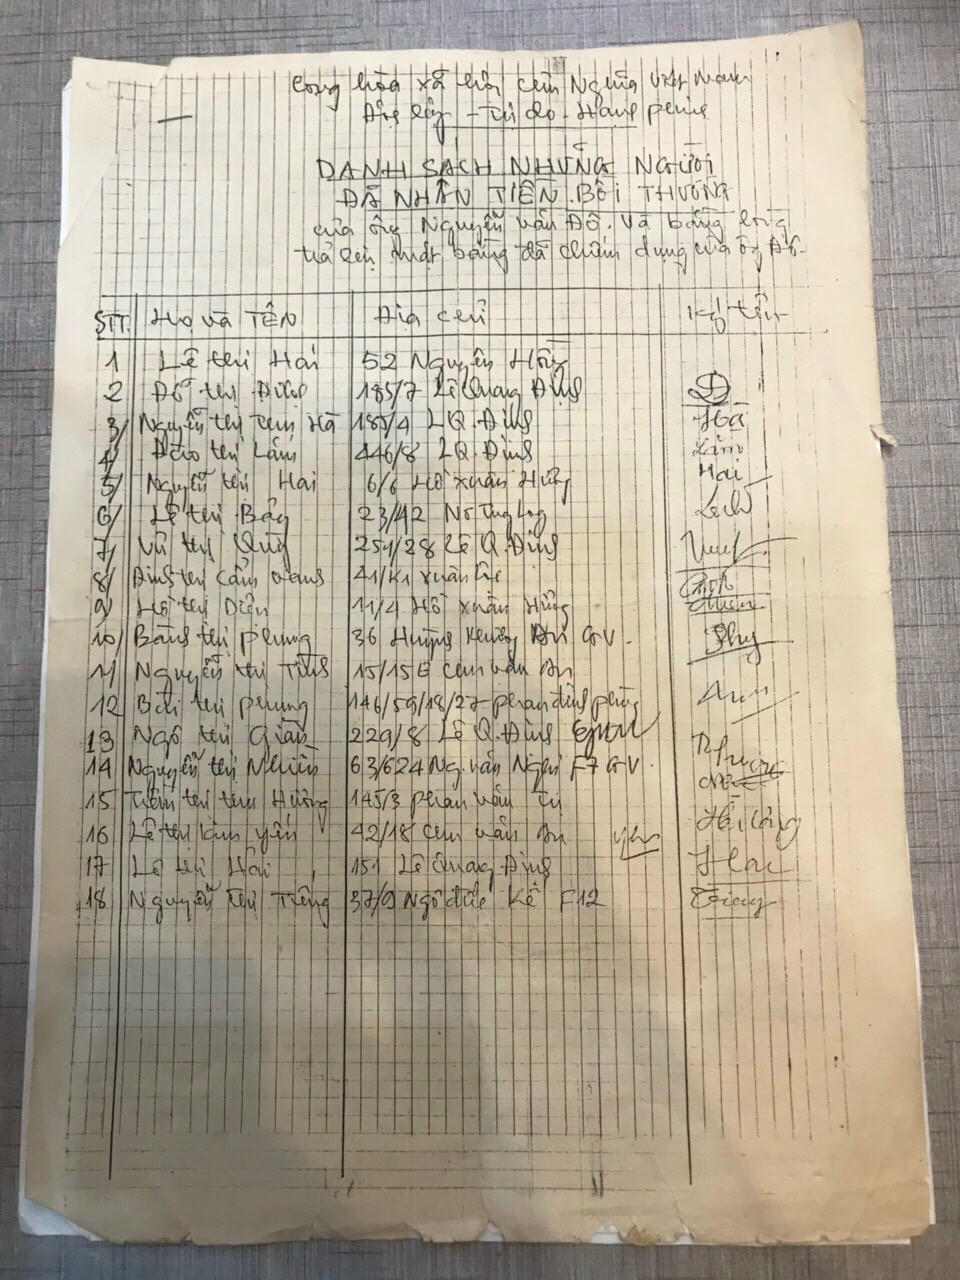 Cộng hòa xã hội chủ Nghĩa Việt Nam
Độc lập - Tự do - Hạnh phúc
DANH SÁCH NHỮNG NGƯỜI
ĐÃ NHẬN TIỀN BỒI THƯỜNG
của ông Nguyễn văn Đô. Và bằng lòng
trả lại mặt bằng đã chiếm dụng của ông Đô.
STT. Họ và TÊN Địa chỉ Ký tên
1 Lê thị Hai 52 Nguyên Hồng
2 Đỗ thị 185/7 Lê Quang Định
3/ Nguyễn thị Hà 185/4 LQ. Định Hà
4/ Đào thị Lắm 446/8 LQ. Định Lắm
5/ Nguyễn thị Hai 6/6 Hồ xuân Hương Hai
6/ Lê thị Bảy 23/42 Nơ Trang Long
7/ Vũ thị Quý 251/28 Lê Q. Định
8/ Đinh thị Cẩm 41/K1
9/ Hồ thị Diễn 11/4 Hồ xuân Hương
10/ thị phụng 36 Huỳnh Khương An GV.
11/ Nguyễn thị 15/15E chu văn An
12 Bùi thị phụng 146/59/18/27 phan đình phùng
13 Ngô thị Giàu 229/8 Lê Q. Định
14 Nguyễn thị Nhuần 63/624 Ng. văn Nghi F7 GV.
15 Trần thị thu Hương 145/3 phan văn Trị
16 Lê thị kim yến 42/18 chu văn An yến
17 Lê thị Hải 151 Lê Quang Định Hai
18 Nguyễn thị Tiếng 37/9 Ngô đức Kế F12